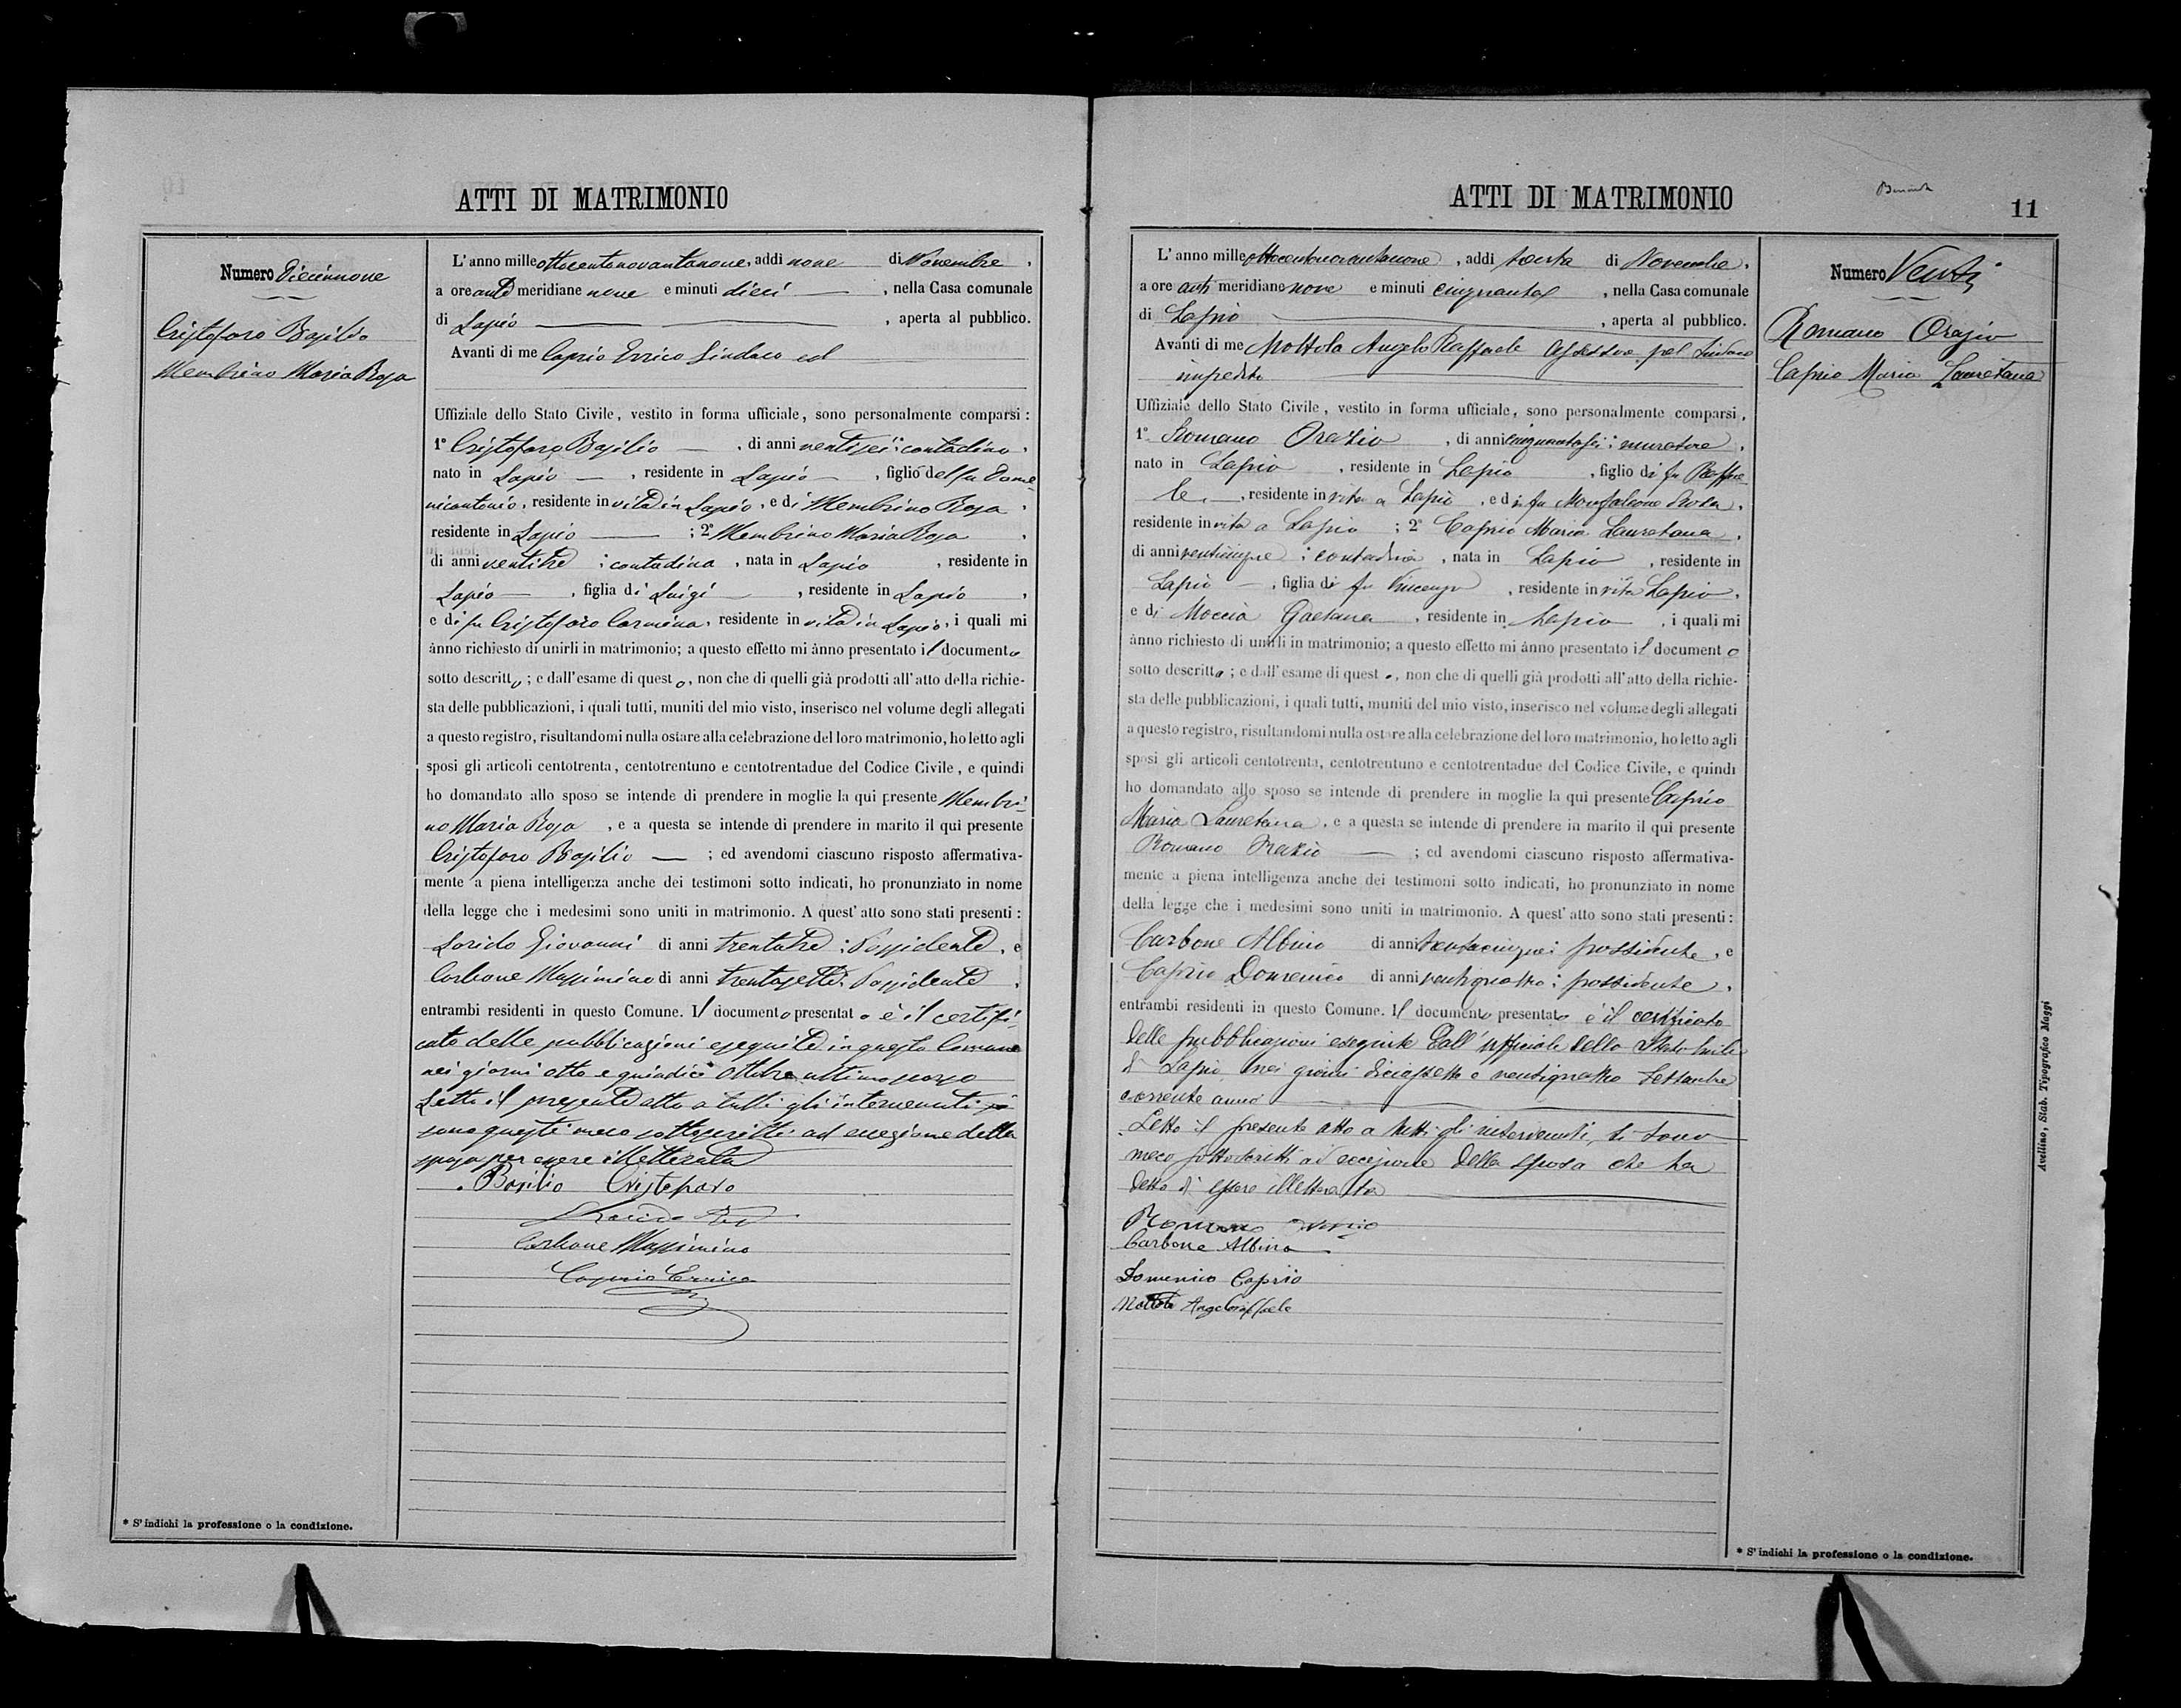 ATTI DI MATRIMONIO
Numero Diecinnove
Cristoforo Basilio
Membrino Maria Rosa
L'anno mille ottocentonovantanove, addi nove di Novembre,
a ore ante meridiane nove e minuti dieci, nella Casa comunale
di Lapio, aperta al pubblico.
Avanti di me Caprio Errico Sindaco ed
Uffiziale dello Stato Civile, vestito in forma ufficiale, sono personalmente comparsi:
1° Cristoforo Basilio, di anni ventisei; contadino,
nato in Lapio, residente in Lapio, figlio del fu Dome-
nicantonio, residente in vita in Lapio, e di Membrino Rosa,
residente in Lapio; 2° Membrino Maria Rosa,
di anni ventitre; contadina, nata in Lapio, residente in
Lapio, figlia di Luigi, residente in Lapio,
e di fu Cristoforo Carmina, residente in vita in Lapio, i quali mi
ànno richiesto di unirli in matrimonio; a questo effetto mi ànno presentato il documento
sotto descritto; e dall'esame di questo, non che di quelli già prodotti all'atto della richie-
sta delle pubblicazioni, i quali tutti, muniti del mio visto, inserisco nel volume degli allegati
a questo registro, risultandomi nulla ostare alla celebrazione del loro matrimonio, ho letto agli
sposi gli articoli centotrenta, centotrentuno e centotrentadue del Codice Civile, e quindi
ho domandato allo sposo se intende di prendere in moglie la qui presente Membri-
no Maria Rosa, e a questa se intende di prendere in marito il qui presente
Cristoforo Basilio; ed avendomi ciascuno risposto affermativa-
mente a piena intelligenza anche dei testimoni sotto indicati, ho pronunziato in nome
della legge che i medesimi sono uniti in matrimonio. A quest'atto sono stati presenti:
Lorido Giovanni di anni trentatre; Possidente, e
Carbone Massimino di anni trentasette; Possidente,
entrambi residenti in questo Comune. Il documento presentato è il certifi-
cato delle pubblicazioni eseguite in questo Comune
nei giorni otto e quindici Ottobre ultimo scorso
Letto il presente atto a tutti gli intervenuti si
sono questi meco sottoscritti ad eccezione della
sposa per essere illetterata
Basilio Cristofaro
Carbone Massimino
Caprio Errico
* S'indichi la professione o la condizione.
ATTI DI MATRIMONIO
11
Numero Venti
Romano Orazio
Caprio Maria Lauretana
L'anno mille ottocentonovantanove, addi trenta di Novembre,
a ore anti meridiane nove e minuti cinquanta, nella Casa comunale
di Lapio, aperta al pubblico.
Avanti di me Mottola Angelo Raffaele Assessore pel Sindaco
impedito
Uffiziale dello Stato Civile, vestito in forma ufficiale, sono personalmente comparsi,
1° Romano Orazio, di anni cinquantasei; muratore,
nato in Lapio, residente in Lapio, figlio di fu Raffae-
le, residente in vita a Lapio, e di fu Monfalcone Rosa,
residente in vita a Lapio; 2° Caprio Maria Lauretana,
di anni venticinque; contadina, nata in Lapio, residente in
Lapio, figlia di fu Vincenzo, residente in vita Lapio,
e di Moccia Gaetana, residente in Lapio, i quali mi
ànno richiesto di unirli in matrimonio; a questo effetto mi ànno presentato il documento
sotto descritto; e dall'esame di questo, non che di quelli già prodotti all'atto della richie-
sta delle pubblicazioni, i quali tutti, muniti del mio visto, inserisco nel volume degli allegati
a questo registro, risultandomi nulla ostare alla celebrazione del loro matrimonio, ho letto agli
sposi gli articoli centotrenta, centotrentuno e centotrentadue del Codice Civile, e quindi
ho domandato allo sposo se intende di prendere in moglie la qui presente Caprio
Maria Lauretana, e a questa se intende di prendere in marito il qui presente
Romano Orazio; ed avendomi ciascuno risposto affermativa-
mente a piena intelligenza anche dei testimoni sotto indicati, ho pronunziato in nome
della legge che i medesimi sono uniti in matrimonio. A quest'atto sono stati presenti:
Carbone Albino di anni trentacinque; possidente, e
Caprio Domenico di anni ventiquattro; possidente,
entrambi residenti in questo Comune. Il documento presentato è il certificato
delle pubblicazioni eseguite dall'ufficiale dello Stato Civile
di Lapio nei giorni diciassette e ventiquattro Settembre
corrente anno
Letto il presente atto a tutti gli intervenuti, si sono
meco sottoscritti ad eccezione della sposa che ha
detto di essere illetterata
Romano Orazio
Carbone Albino
Domenico Caprio
Mottola Angeloraffaele
* S'indichi la professione o la condizione.
Avellino, Stab. Tipografico Maggi